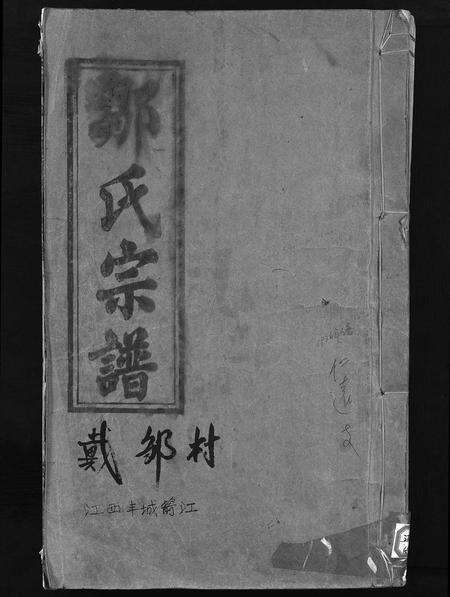 鄒氏宗譜
戴鄒村
江西丰城箭江
仁達支